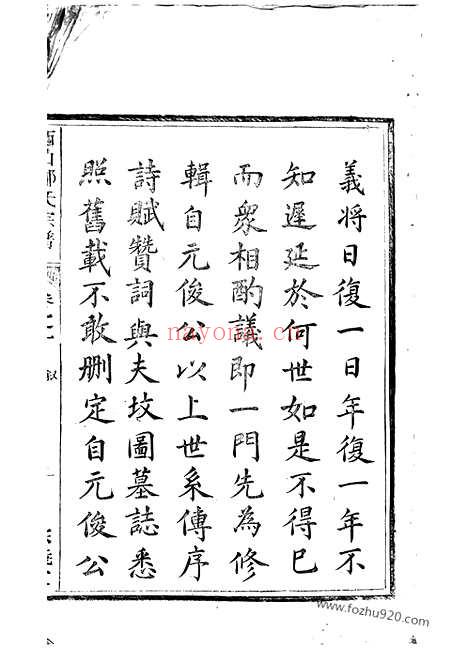 義將日復一日年復一年不
知遲延於何世如是不得已
而衆相酌議即一門先為修
輯自元俊公以上世系傳序
詩賦贊詞與夫坟圖墓誌悉
照舊載不敢删定自元俊公
氏宗譜
叙
nayona.cn
www.fozhu920.com